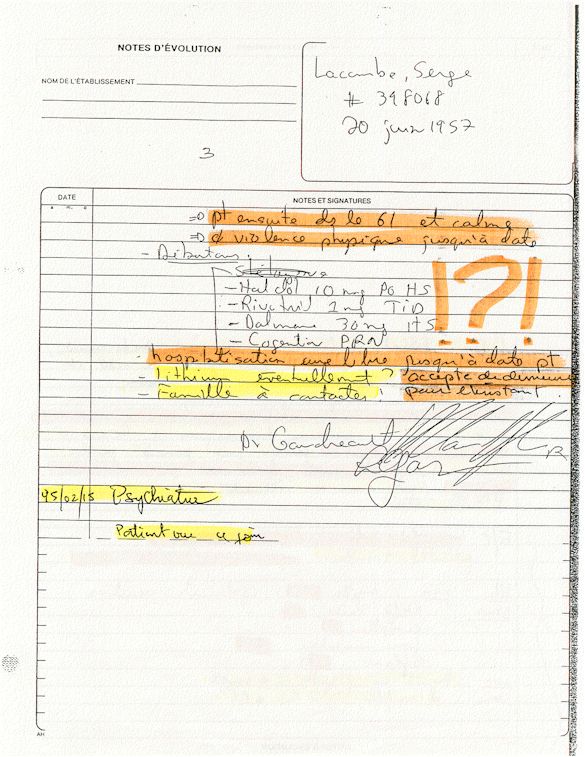 NOTES D'ÉVOLUTION
NOM DE L'ÉTABLISSEMENT
Lacombe, Serge
# 398068
20 juin 1957
3
DATE
NOTES ET SIGNATURES
A M D
⇒ pt ensuite ds le 61 et calme
⇒ ∅ violence physique jusqu'à date
- Débutons:
- Haldol 10 mg PO HS
- Rivotril 2 mg TID
- Dalmane 30 mg HS
- Cogentin PRN
!?!
- hospitalisation cure libre jusqu'à date pt
- Lithium éventuellement? accepte de demeurer
- Famille à contacter! pour l'instant
Dr Gaudreault
95/02/15 Psychiatrie
Patient vu ce jour
AH